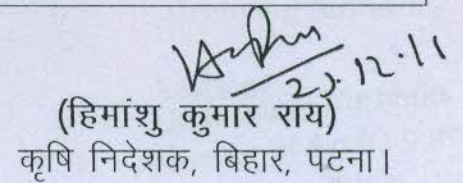 23.12.11
(हिमांशु कुमार राय)
कृषि निदेशक, बिहार, पटना।